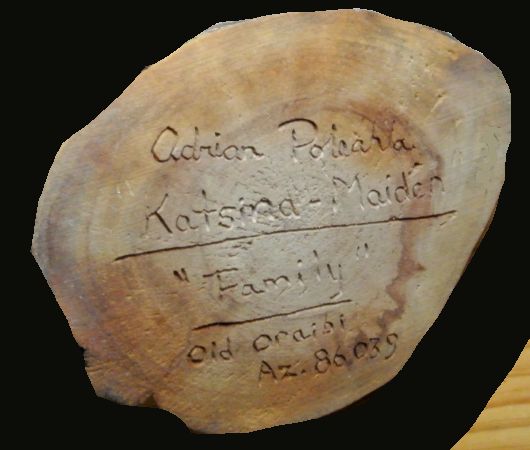 Adrian Poleahla
"Katsina-Maiden
"Family"
Old Oraibi
Az. 86039